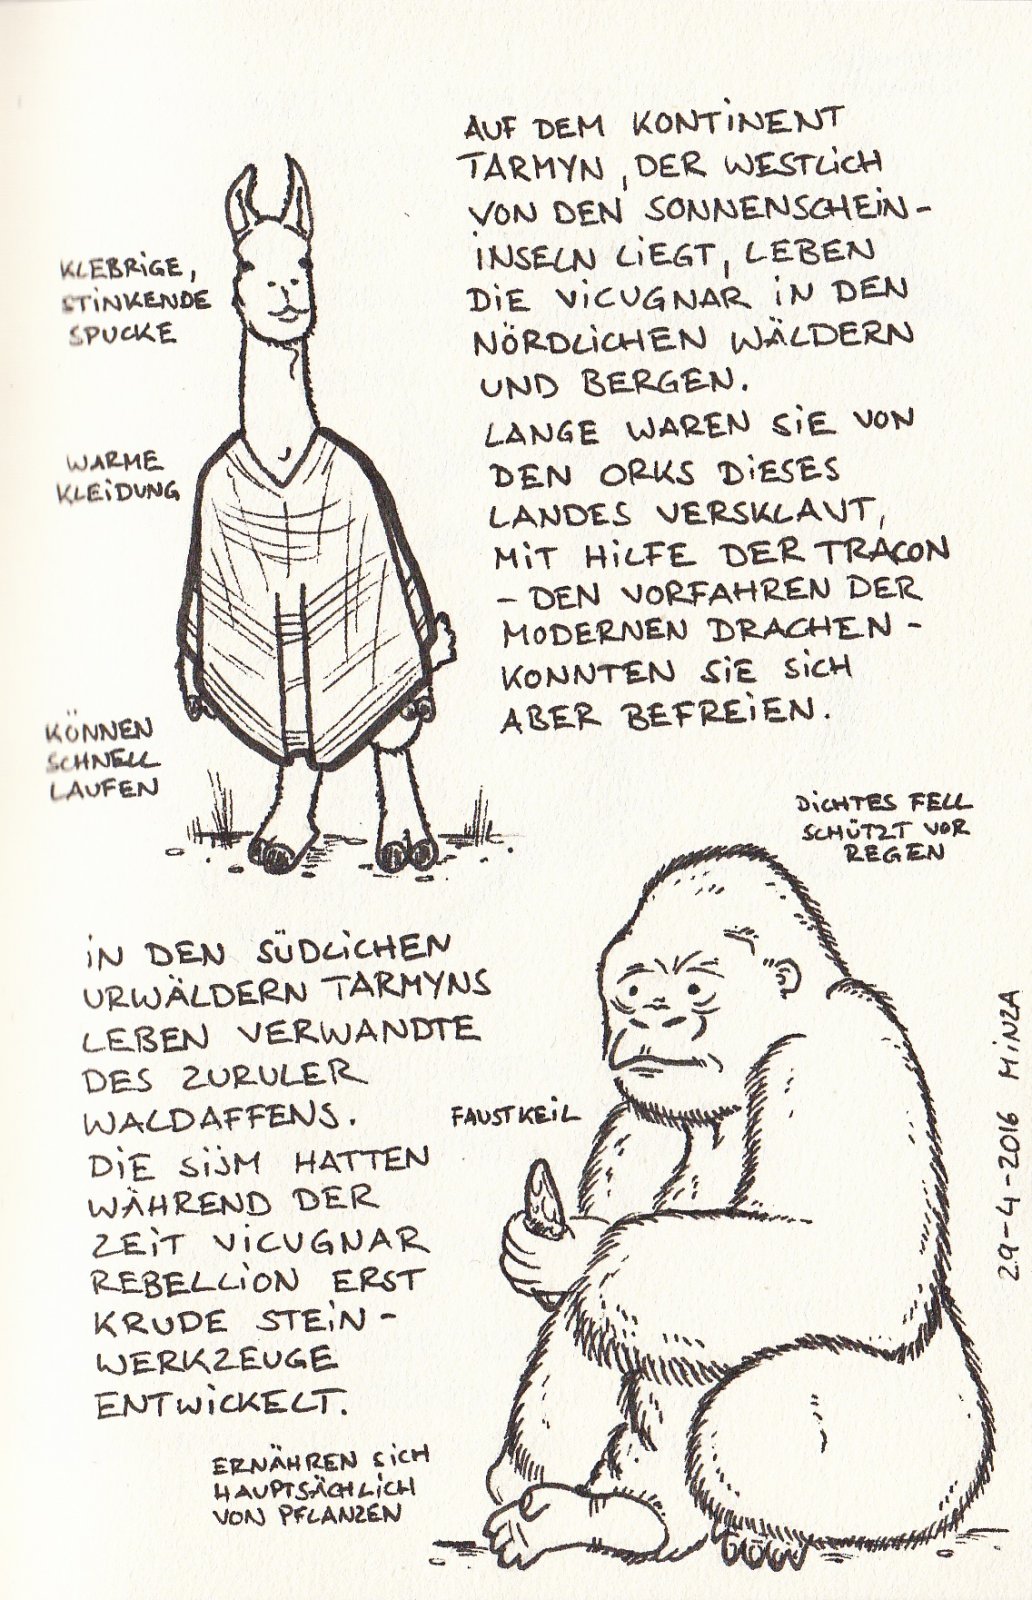 AUF DEM KONTINENT
TARMYN, DER WESTLICH
VON DEN SONNENSCHEIN-
INSELN LIEGT, LEBEN
DIE VICUGNAR IN DEN
NÖRDLICHEN WÄLDERN
UND BERGEN.
LANGE WAREN SIE VON
DEN ORKS DIESES
LANDES VERSKLAVT,
MIT HILFE DER TRACON
- DEN VORFAHREN DER
MODERNEN DRACHEN -
KONNTEN SIE SICH
ABER BEFREIEN.
KLEBRIGE,
STINKENDE
SPUCKE
WARME
KLEIDUNG
KÖNNEN
SCHNELL
LAUFEN
DICHTES FELL
SCHÜTZT VOR
REGEN
IN DEN SÜDLICHEN
URWÄLDERN TARMYNS
LEBEN VERWANDTE
DES ZURULER
WALDAFFENS.
DIE SIJM HATTEN
WÄHREND DER
ZEIT VICUGNAR
REBELLION ERST
KRUDE STEIN-
WERKZEUGE
ENTWICKELT.
FAUSTKEIL
ERNÄHREN SICH
HAUPTSÄCHLICH
VON PFLANZEN
29-4-2016 MINZA